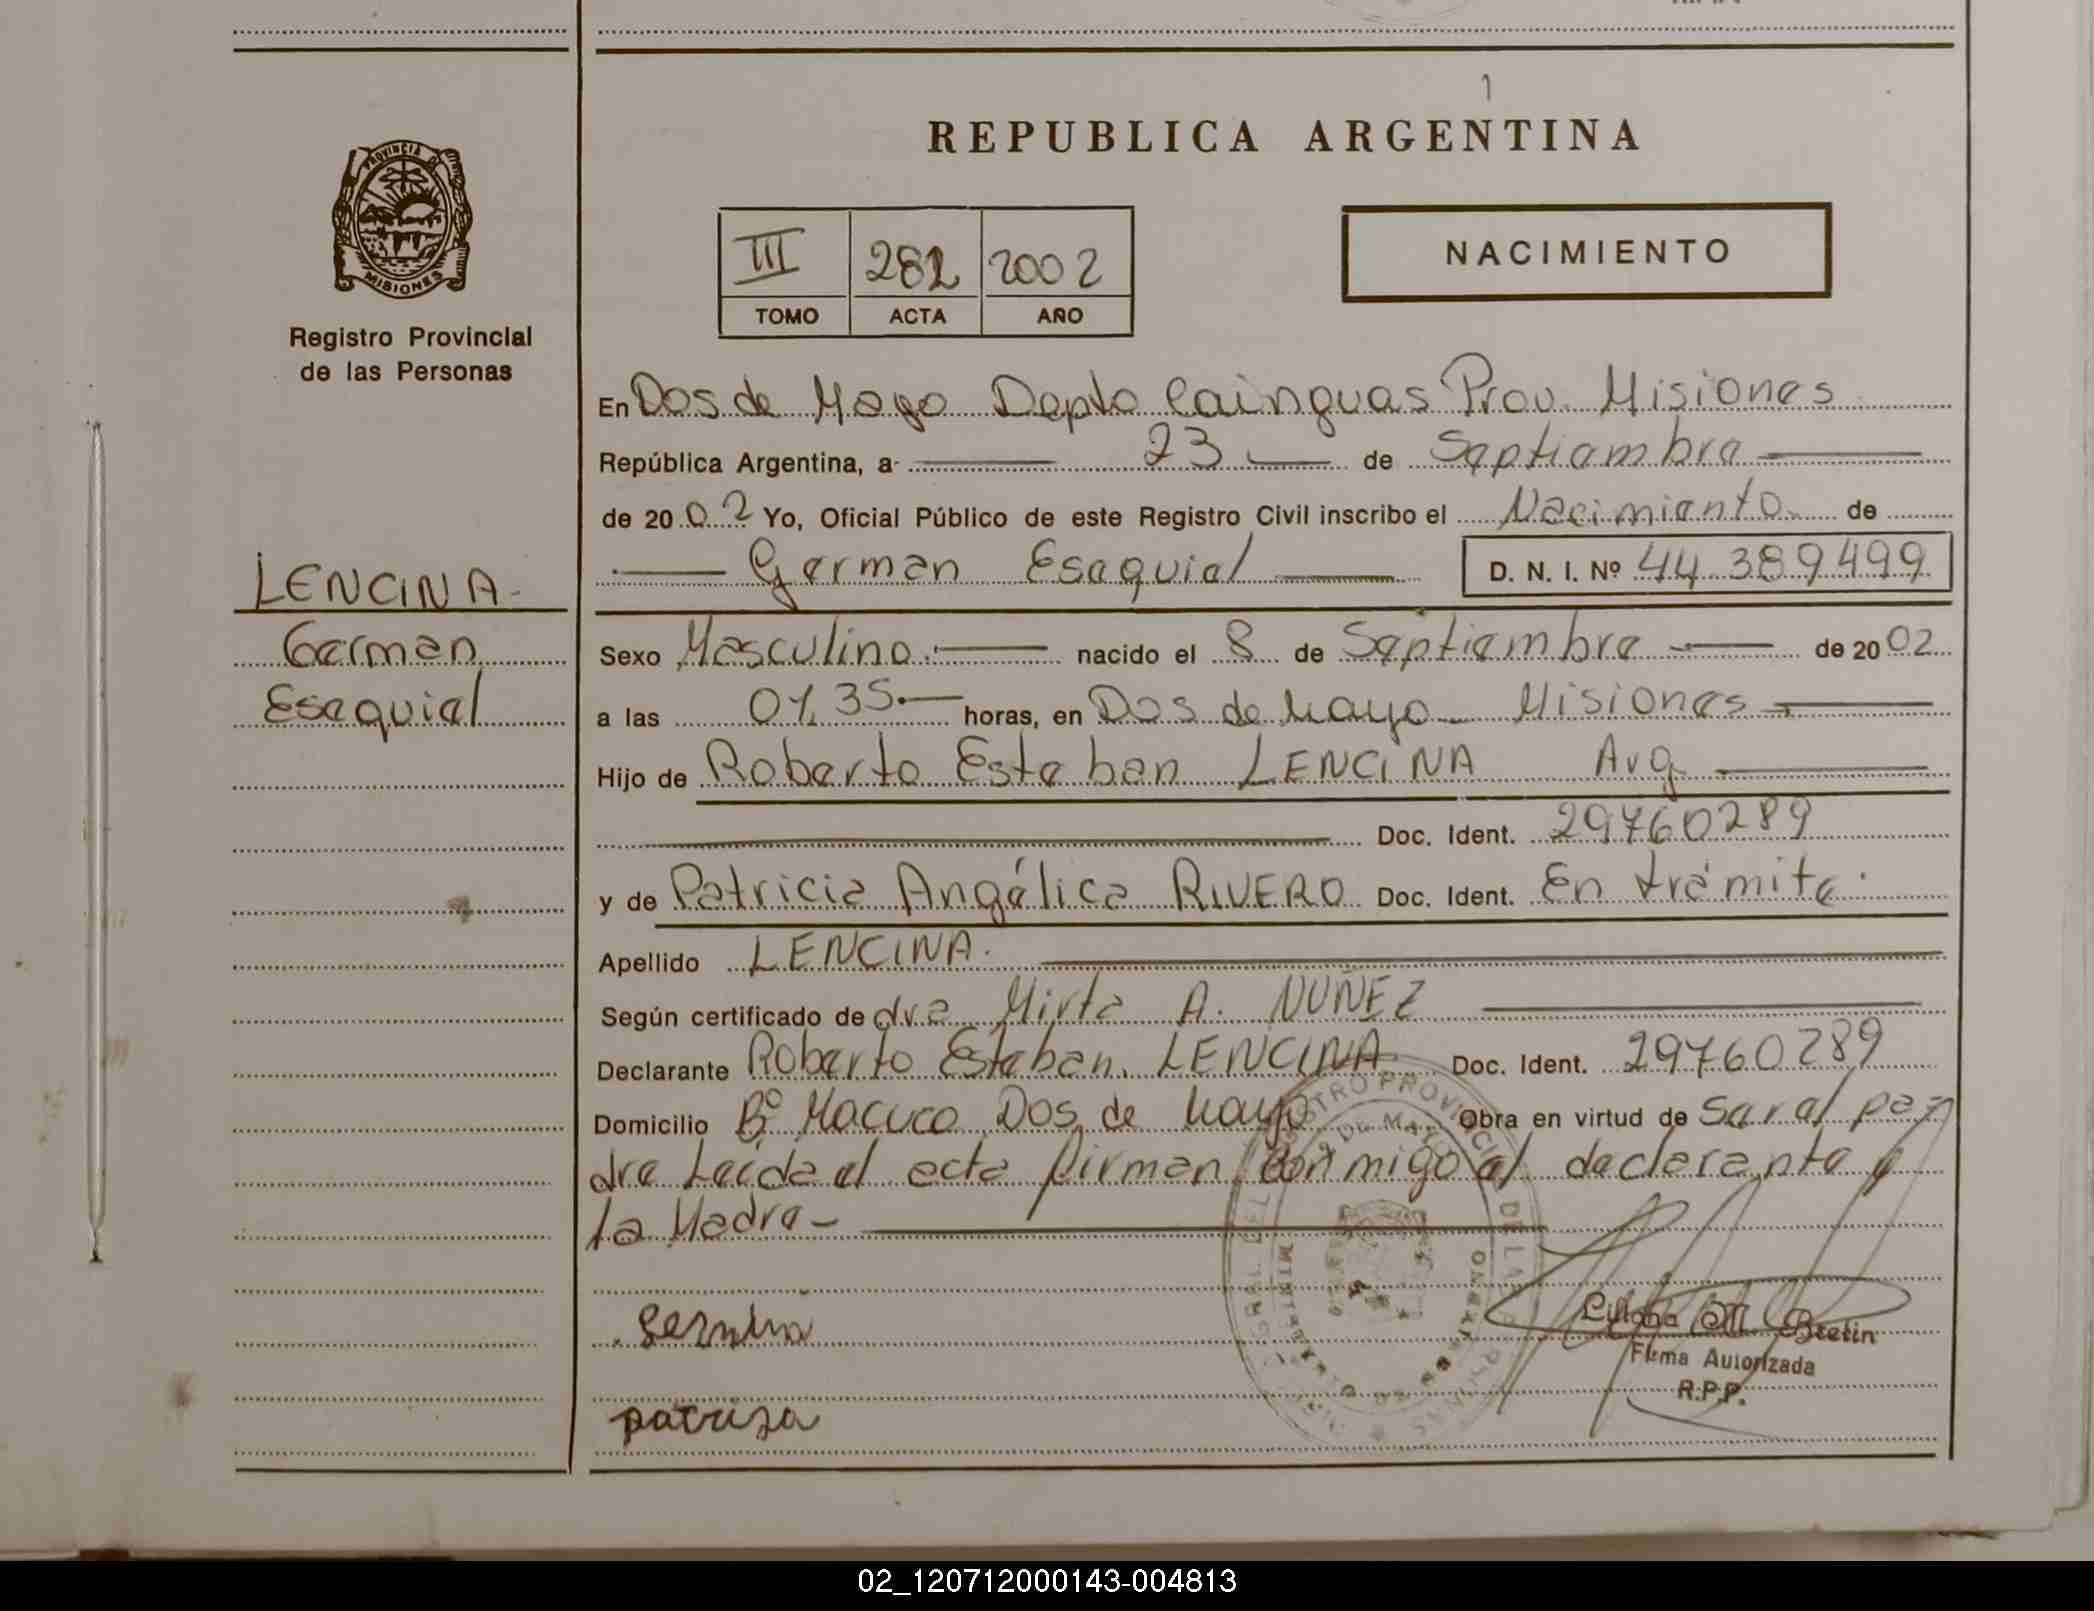 REPUBLICA ARGENTINA
PROVINCIA D
MISIONES
Registro Provincial
de las Personas
III 282 2002
TOMO ACTA AÑO
NACIMIENTO
En Dos de Mayo Depto Cainguas Prov. Misiones
República Argentina, a 23 de Septiembre
de 2002 Yo, Oficial Público de este Registro Civil inscribo el Nacimiento de
German Esequiel D. N. I. Nº 44.389.499
LENCINA.
German
Esequiel
Sexo Masculino.- nacido el 8 de Septiembre de 2002
a las 01,35.- horas, en Dos de Mayo - Misiones
Hijo de Roberto Esteban LENCINA Arg
Doc. Ident. 29760289
y de Patricia Angélica RIVERO Doc. Ident. En trámite.
Apellido LENCINA.
Según certificado de dra Mirta A. NUÑEZ
Declarante Roberto Esteban LENCINA Doc. Ident. 29760289
Domicilio Bº Macuco Dos de Mayo Obra en virtud de ser el pa
dre Leída el acta firman conmigo el declarante y
la Madre-
Firma Autorizada
R.P.P.
02_120712000143-004813